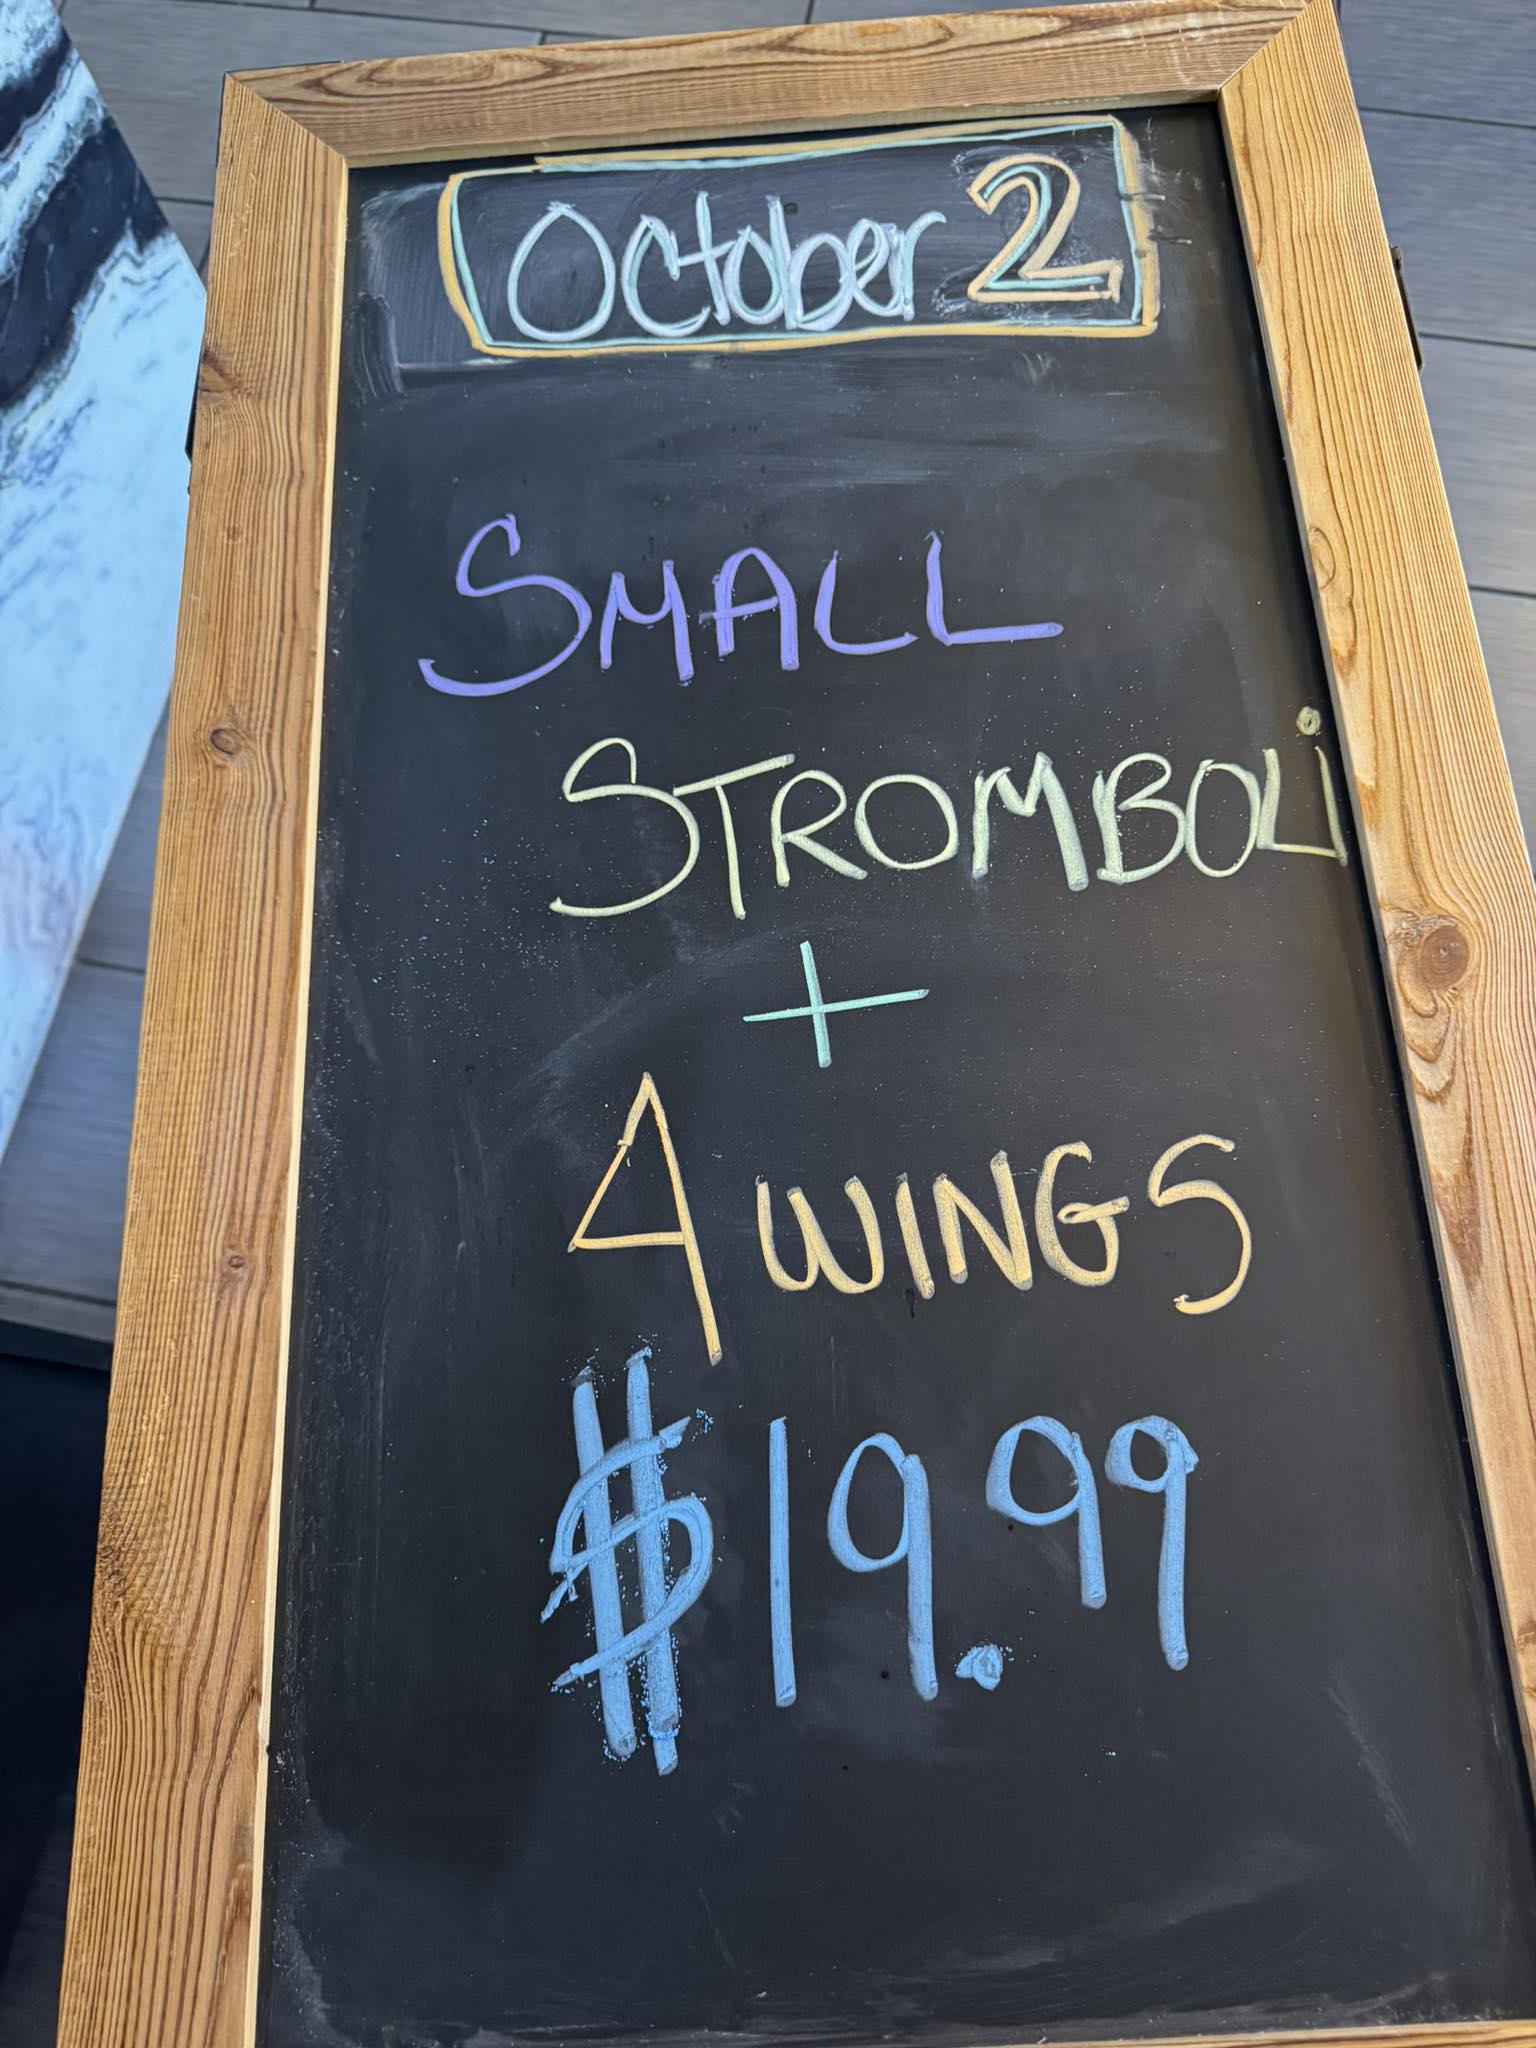 October 2
SMALL
STROMBOLi
+
4 WINGS
$19.99